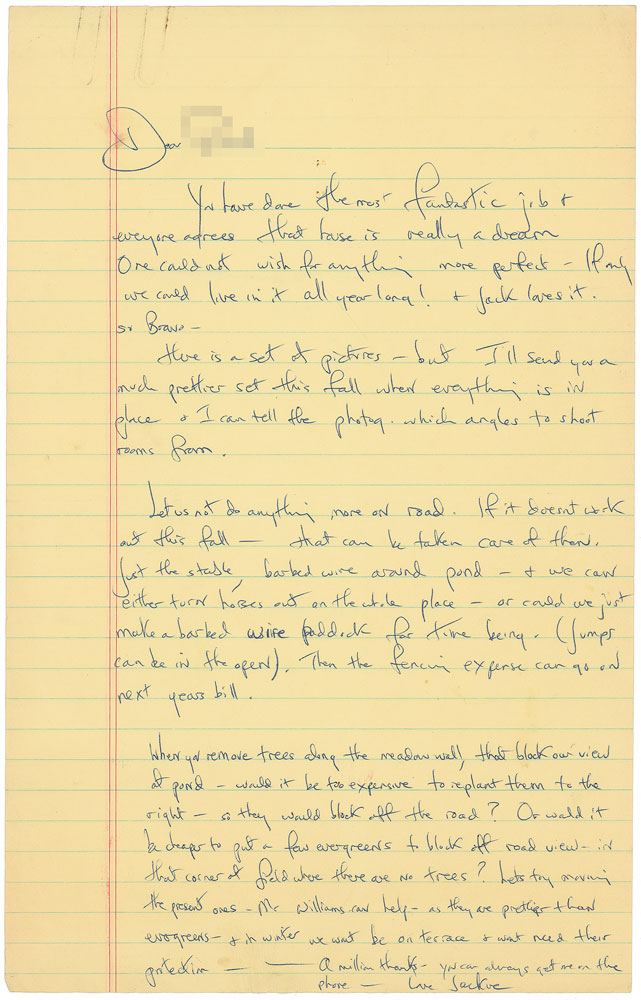 Dear
You have done the most fantastic job &
everyone agrees that house is really a dream
One could not wish for anything more perfect - If only
we could live in it all year long! & Jack loves it.
so Bravo -
Here is a set of pictures - but I'll send you a
much prettier set this fall when everything is in
place & I can tell the photog. which angles to shoot
rooms from.
Let us not do anything more on road. If it doesnt work
out this fall - that can be taken care of then.
Just the stable, barbed wire around pond - & we can
either turn horses out on the whole place - or could we just
make a barbed wire paddock for time being. (Jumps
can be in the open). Then the fencing expense can go on
next years bill.
When you remove trees along the meadow wall, that block our view
of pond - would it be too expensive to replant them to the
right - so they would block off the road? Or would it
be cheaper to put a few evergreens to block off road view - in
that corner of field where there are no trees? Lets try moving
the present ones - Mr Williams can help - as they are prettier than
evergreens - & in winter we wont be on terrace & wont need their
protection - - A million thanks - you can always get me on the
phone - Love Jackie